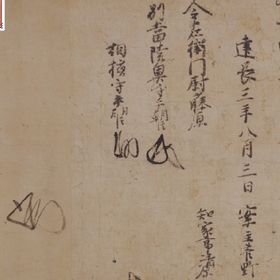 建長三年八月三日 案主菅野
知家事清原
令左衛門尉藤原
別当陸奥守平朝臣
相模守平朝臣